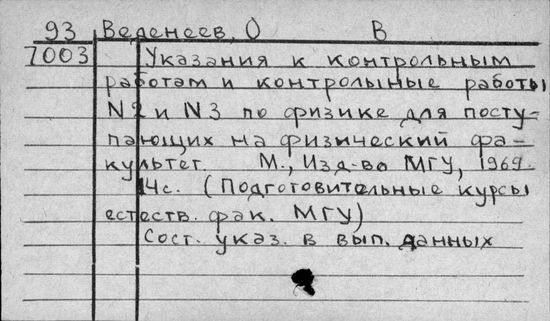 93 Веденеев, О В
7003 Указания к контрольным
работам и контрольные работы
N2 и N3 по физике для посту-
пающих на физический фа-
культет. М., Изд-во МГУ, 1969.
14с. (Подготовительные курсы
естеств. фак. МГУ)
Сост. указ. в вып. данных